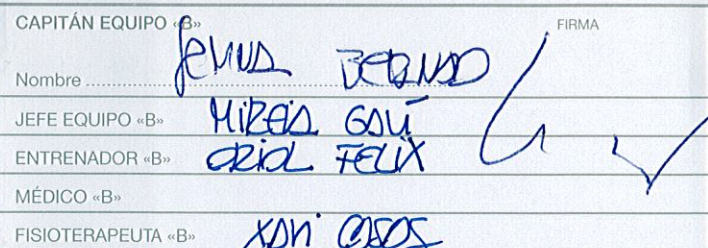 CAPITÁN EQUIPO «B» FIRMA
Nombre GEMMA BERNAD
JEFE EQUIPO «B» MIREIA GALÍ
ENTRENADOR «B» ORIOL FELIX
MÉDICO «B»
FISIOTERAPEUTA «B» XAVI CASOS